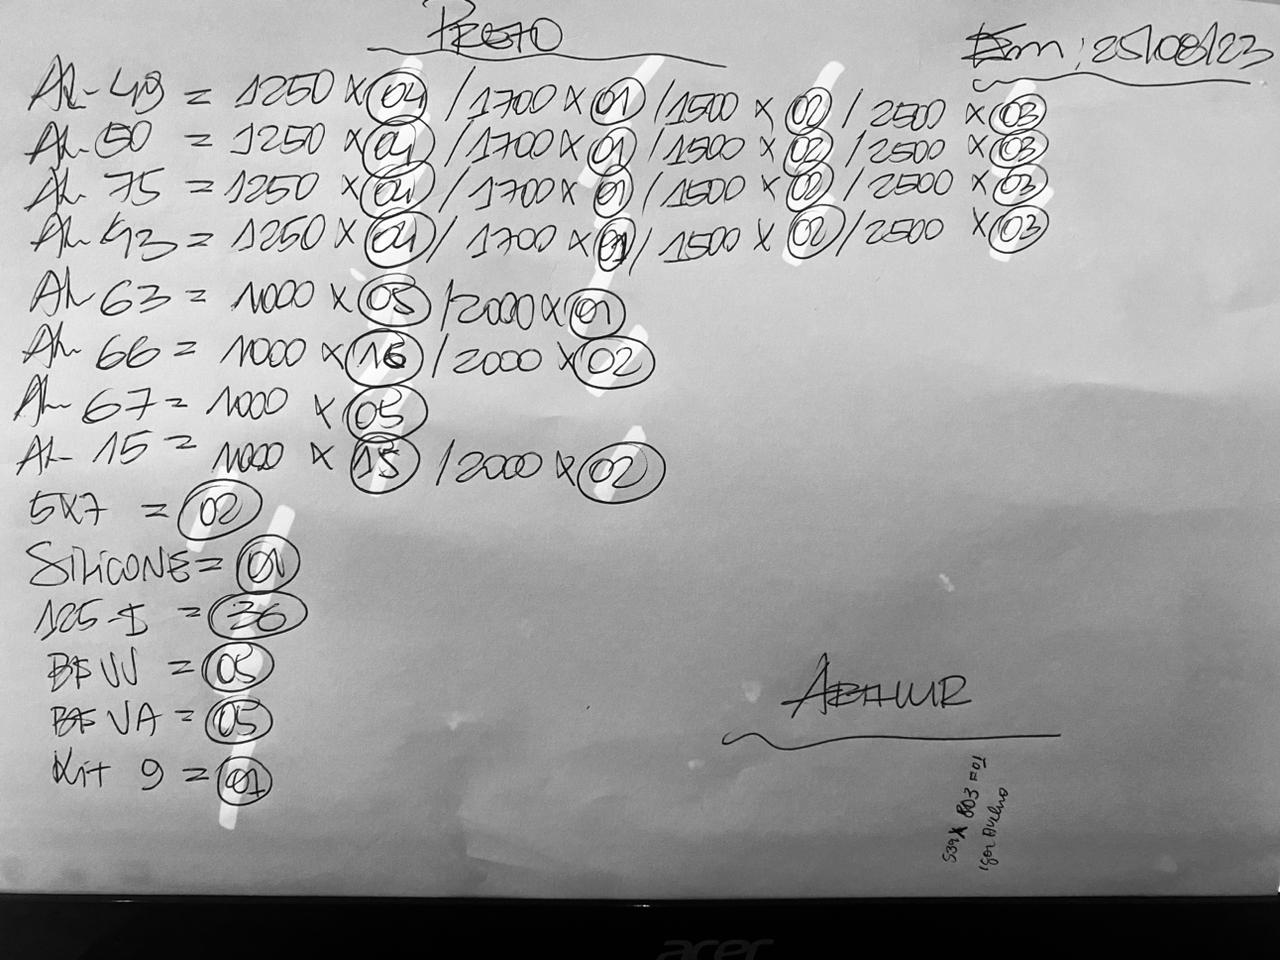 PRETO
Em: 25/08/23
AL-49 = 1250 X 04 / 1700 X 01 / 1500 X 02 / 2500 X 03
AL 50 = 1250 X 04 / 1700 X 01 / 1500 X 02 / 2500 X 03
AL 75 = 1250 X 04 / 1700 X 01 / 1500 X 02 / 2500 X 03
AL 43 = 1250 X 04 / 1700 X 01 / 1500 X 02 / 2500 X 03
AL 63 = 1000 X 05 / 2000 X 01
AL 66 = 1000 X 16 / 2000 X 02
AL 67 = 1000 X 05
AL 15 = 1000 X 15 / 2000 X 02
5X7 = 02
SILICONE = 01
125-$ = 36
BF VV = 05
BF VA = 05
Kit 9 = 01
ARTHUR
539 X 803 = 01
Igor Avelino
acer